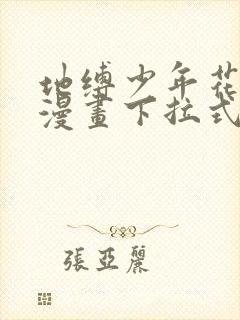 地缚少年花
漫畫下拉式
張亞麗